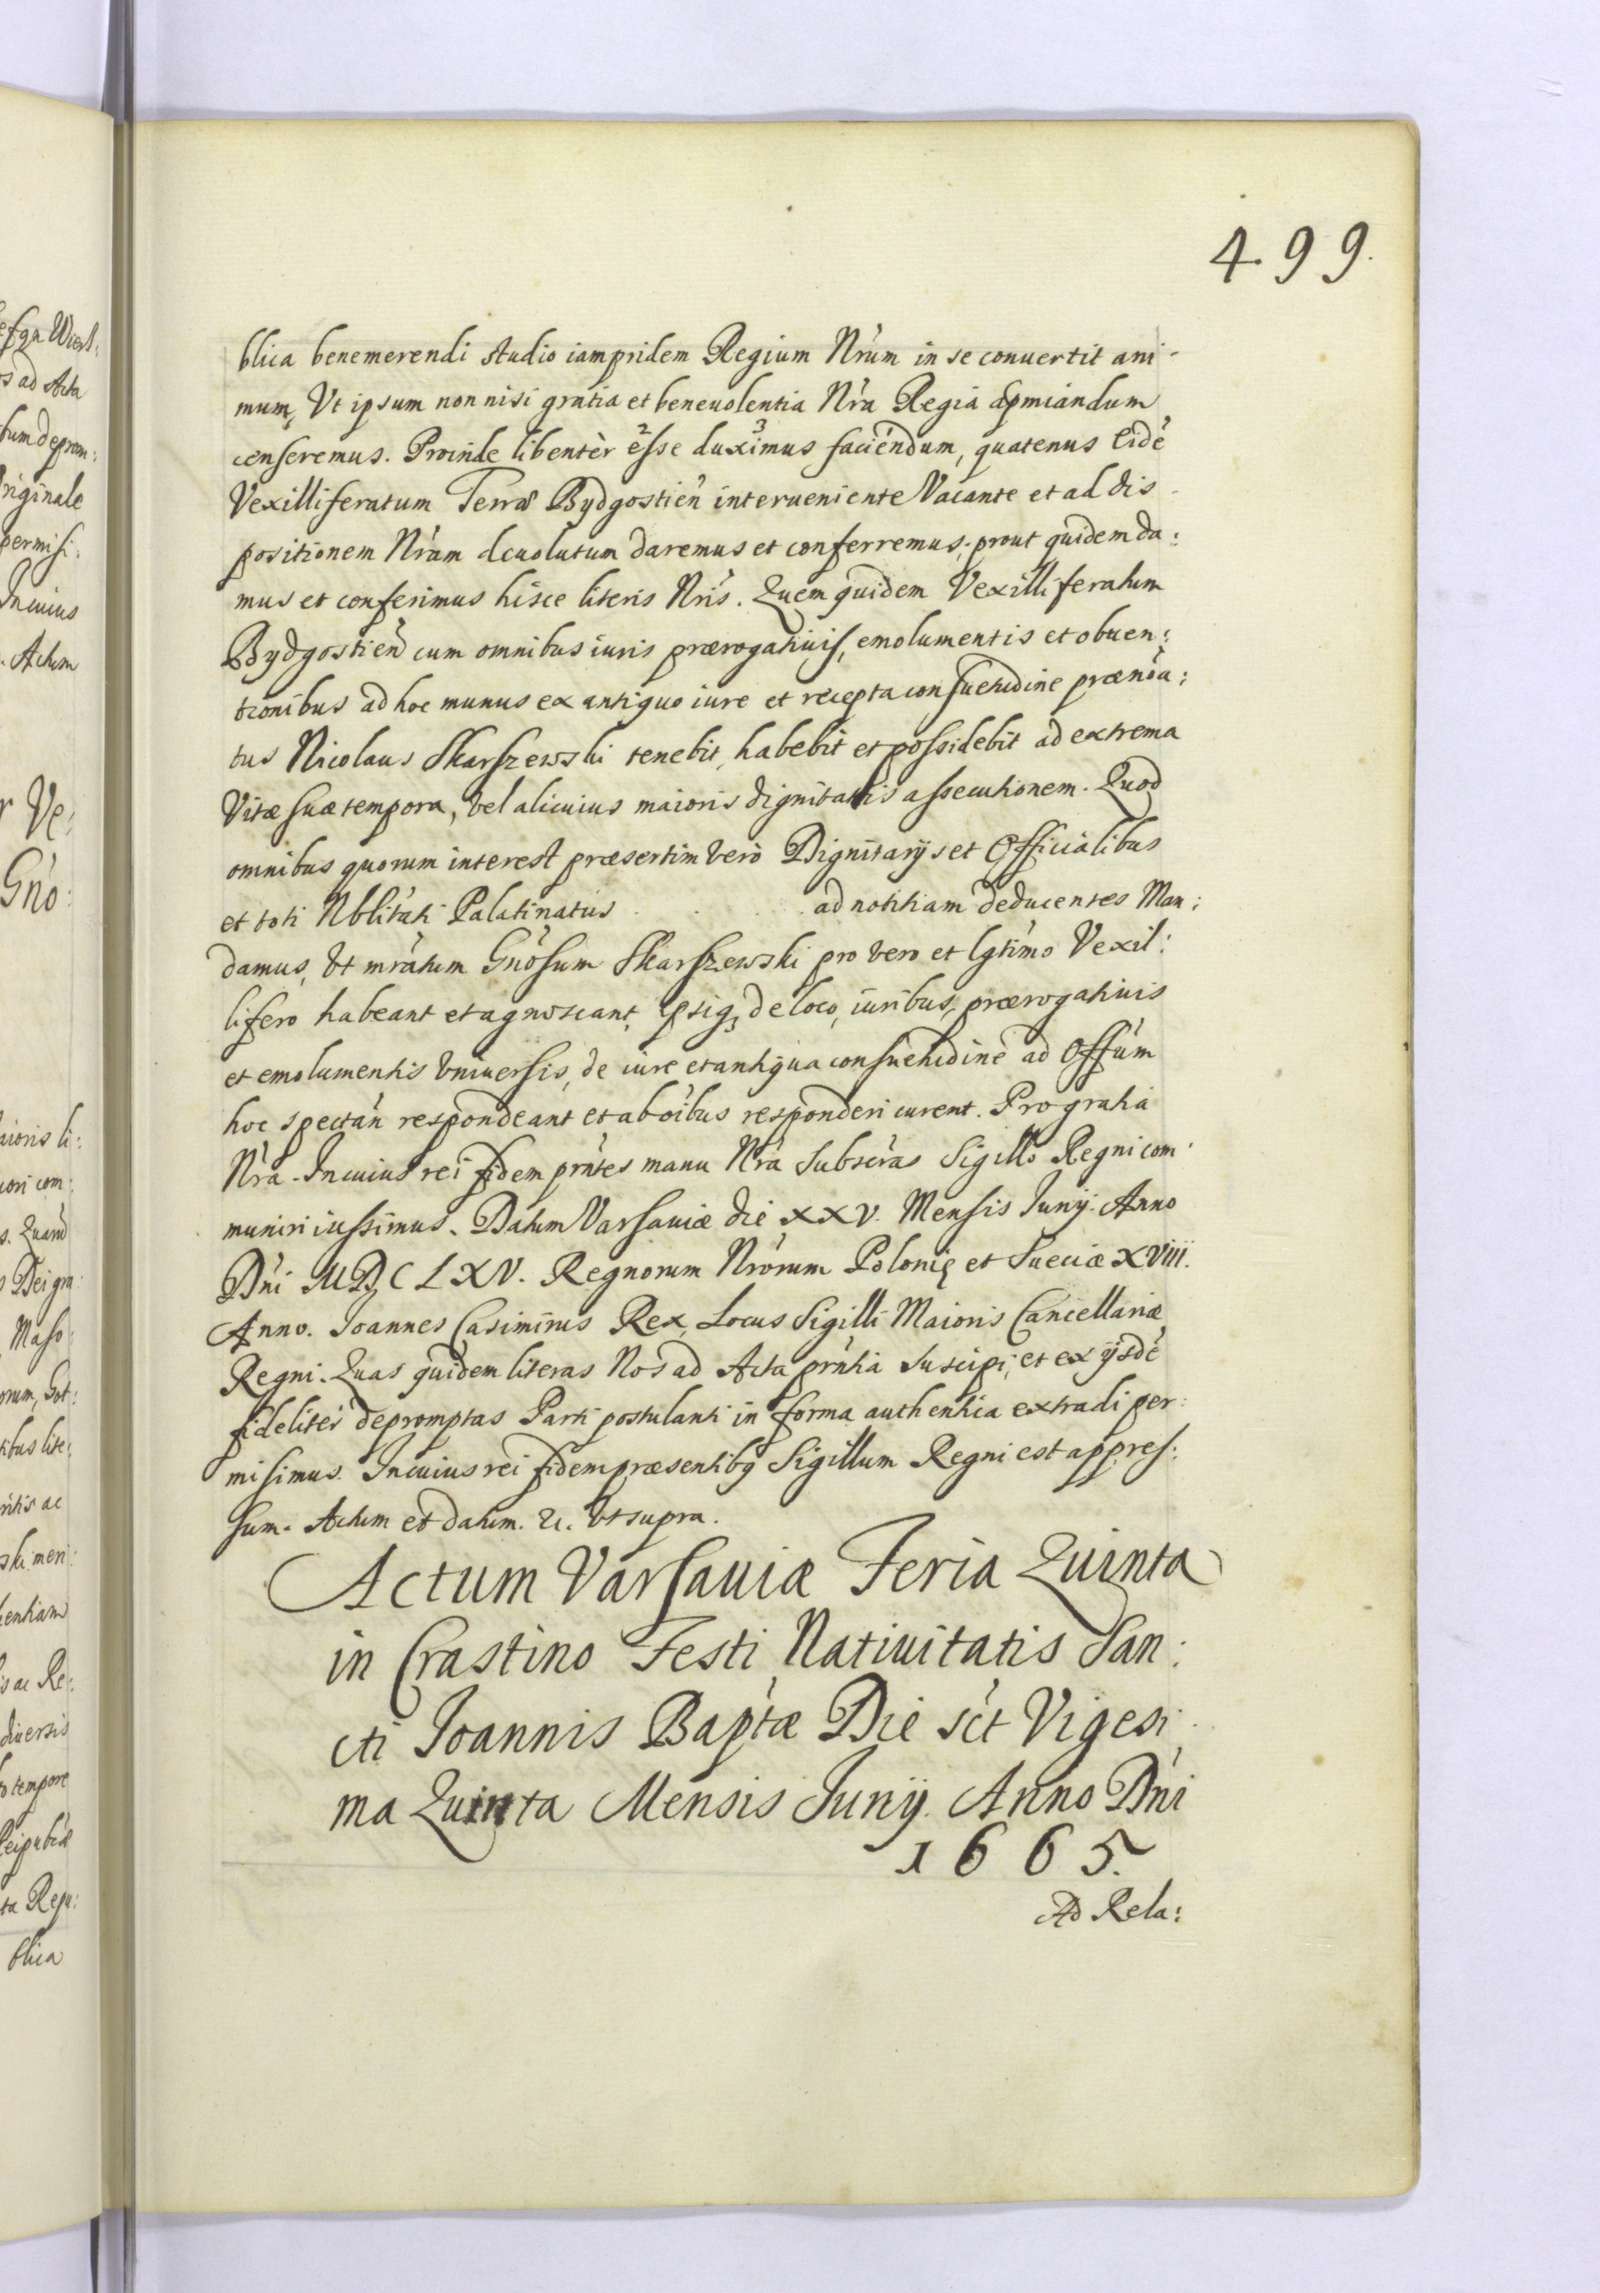 499.
blica benemerendi studio iampridem Regium Nrum in se conuertit ani-
mum, Vt ipsum non nisi gratia et beneuolentia Nra Regia dpmiandum
censeremus. Proinde libentèr esse duximus faciendum, quatenus Eide
Vexilliferatum Terræ Bydgostien interueniente Vacante et ad dis-
positionem Nram deuolutum daremus et conferremus, prout quidem da:
mus et conferimus hisce literis Nris. Quem quidem Vexilliferatum
Bydgostien cum omnibus iuris prærogatiuis, emolumentis et obuen:
tionibus ad hoc munus ex antiquo iure et recepta consuetudine prænoa:
tus Nicolaus Skarszewski tenebit, habebit et possidebit ad extrema
Vitæ suæ tempora, vel alicuius maioris dignitatis assecutionem. Quod
omnibus quorum interest præsertim verò Dignitarijs et Officialibus
et toti Nblitati Palatinatus . . . . ad notitiam deducentes Man:
damus, vt mratum Gnosum Skarszewski pro vero et lgtimo Vexil:
lifero habeant et agnoscant, ipsiq, de loco, iuribus, prærogatiuis
et emolumentis vniuersis, de iure et antiqua consuetudine ad Offum
hoc spectan respondeant et ab oibus responderi curent. Pro gratia
Nra. In cuius rei fidem prntes manu Nra subscras Sigillo Regni com:
muniri iussimus. Datum Varsauiæ die XXV. Mensis Junij. Anno
Dni MDCLXV. Regnorum Nrorum Polonię et Sueciæ XVIII.
Anno. Joannes Casimirus Rex, Locus Sigilli Maioris Cancellariæ
Regni. Quas quidem literas Nos ad Acta prntia suscipi, et ex ijsde
fideliter depromptas Parti postulanti in forma authentica extradi per:
misimus. In cuius rei fidem præsentibq Sigillum Regni est appres:
sum. Actum et datum. &c. vt supra.
Actum Varsauiæ Feria Quinta
in Crastino Festi Natiuitatis San:
cti Joannis Baptæ Die sct Vigesi:
ma Quinta Mensis Junij. Anno Dni
1665.
Ad Rela: